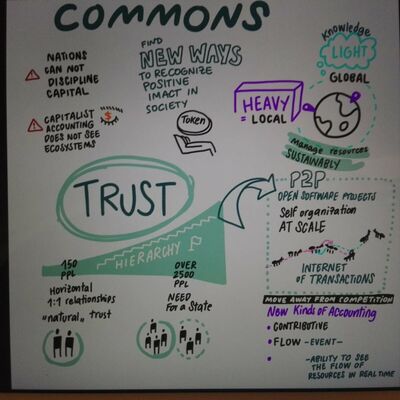 COMMONS
NATIONS
CAN NOT
DISCIPLINE
CAPITAL
CAPITALIST
ACCOUNTING
DOES NOT SEE
ECOSYSTEMS
$
FIND
NEW WAYS
TO RECOGNIZE
POSITIVE
IMACT IN
SOCIETY
Token
Knowledge
LIGHT
GLOBAL
HEAVY
= LOCAL
Manage resources
SUSTAINABLY
TRUST
HIERARCHY
150
PPL
OVER
2500
PPL
Horizontal
1:1 relationships
"natural" trust
NEED
For a State
P2P
OPEN SOFTWARE PROJECTS
Self organization
AT SCALE
INTERNET
OF TRANSACTIONS
MOVE AWAY FROM COMPETITION
New Kinds of Accounting
• CONTRIBUTIVE
• FLOW -EVENT-
•
-ABILITY TO SEE
THE FLOW OF
RESOURCES IN REAL TIME